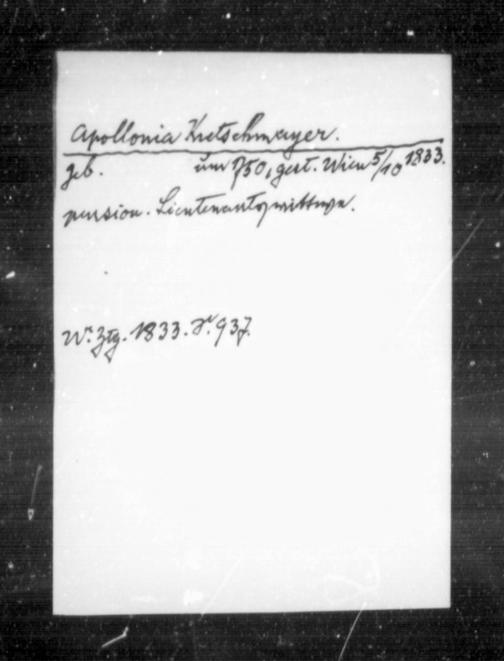 Apollonia Kretschmayer.
geb. um 750, gest. Wien 5/10 1833.
pension. Lieutenantswittwe.
Wr. Ztg. 1833. S. 937.